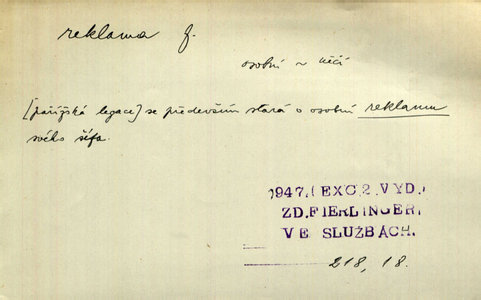 reklama f.
osobní ~ něčí
[pařížská legace] se především stará o osobní reklamu
svého šéfa.
1947.(EXC.2.VYD.)
ZD.FIERLINGER,
VE SLUŽBÁCH.
218, 18.